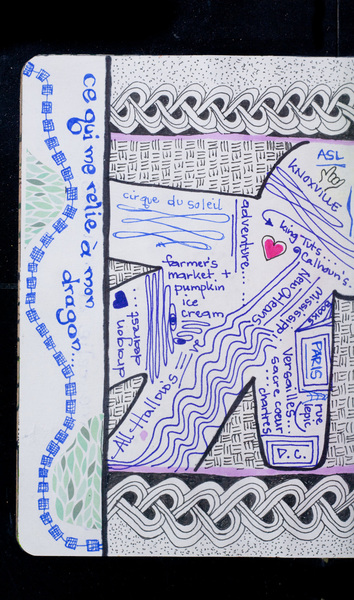 ce qui me relie à mon dragon...
ASL
KNOXVILLE
cirque du soleil
adventure...
king nuts...
@ Calhoun's
farmer's
market +
pumpkin
ice
cream
New Orleans
Mississippi
dearest
dragon
PARIS
rue
Versailles...
sacre coeur
...chartres
All-Hallow's
D.C.